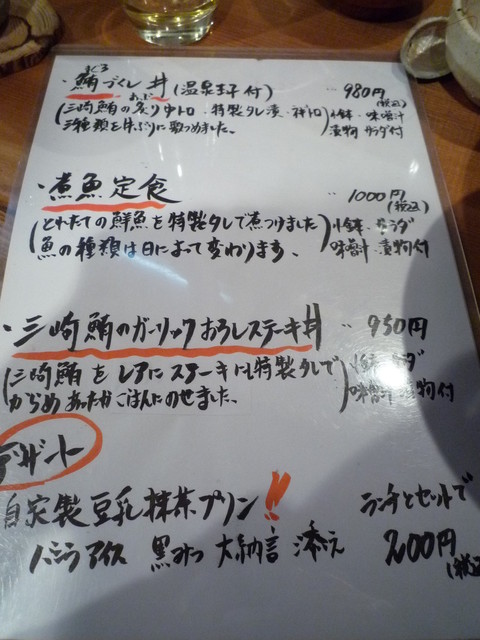 まぐろ
・鮪づくし丼(温泉玉子付) ‥ 980円
(税込)
(三崎鮪の炙り中トロ・特製タレ漬・ネギトロ) 小鉢・味噌汁
三種類を丼ぶりに敷つめました。 漬物 サラダ付
・煮魚定食 ‥ 1000円
(税込)
(とれたての鮮魚を特製タレで煮つけました) 小鉢・サラダ
魚の種類は日によって変わります、 味噌汁・漬物付
・三崎鮪のガーリックおろしステーキ丼 ‥ 950円
(三崎鮪をレアにステーキにし特製タレで) 小鉢 サラダ
からめあったかごはんにのせました。 味噌汁 漬物付
デザート
自家製豆乳抹茶プリン!! ランチとセットで
バニラアイス 黒みつ 大納言 添え 200円
(税込